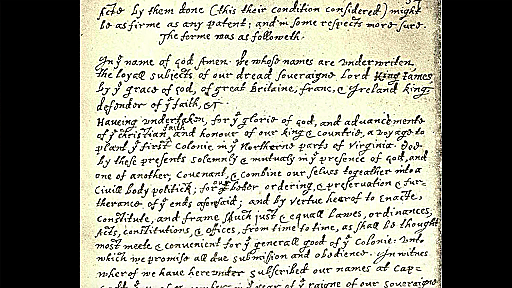 first by them done (this their condition considered) might
be as firme as any patent; and in some respects more sure.
The forme was as followeth.
In yᵉ name of god Amen. We whose names are underwriten,
the loyall subjects of our dread soveraigne Lord King James
by yᵉ grace of god, of great Britaine, franc, & Ireland king,
defender of yᵉ faith, &c
Haveing undertaken, for yᵉ glorie of god, and advancemente
of yᵉ christian faith and honour of our king & countrie, a voyage to
plant yᵉ first colonie in yᵉ Northerne parts of Virginia. Doe
by these presents solemnly & mutualy in yᵉ presence of god, and
one of another, covenant, & combine our selves togeather into a
Civill body politick; for our better ordering, & preservation & fur-
therance of yᵉ ends aforesaid; and by vertue hearof to Enacte,
constitute, and frame shuch just & equall Lawes, ordinances,
Acts, constitutions, & offices, from time to time, as shall be thought
most meete & convenient for yᵉ generall good of yᵉ Colonie: Unto
which we promise all due submission and obedience. In witnes
wherof we have hereunder subscribed our names at Cap-
yᵉ year of yᵉ raigne of our soveraigne